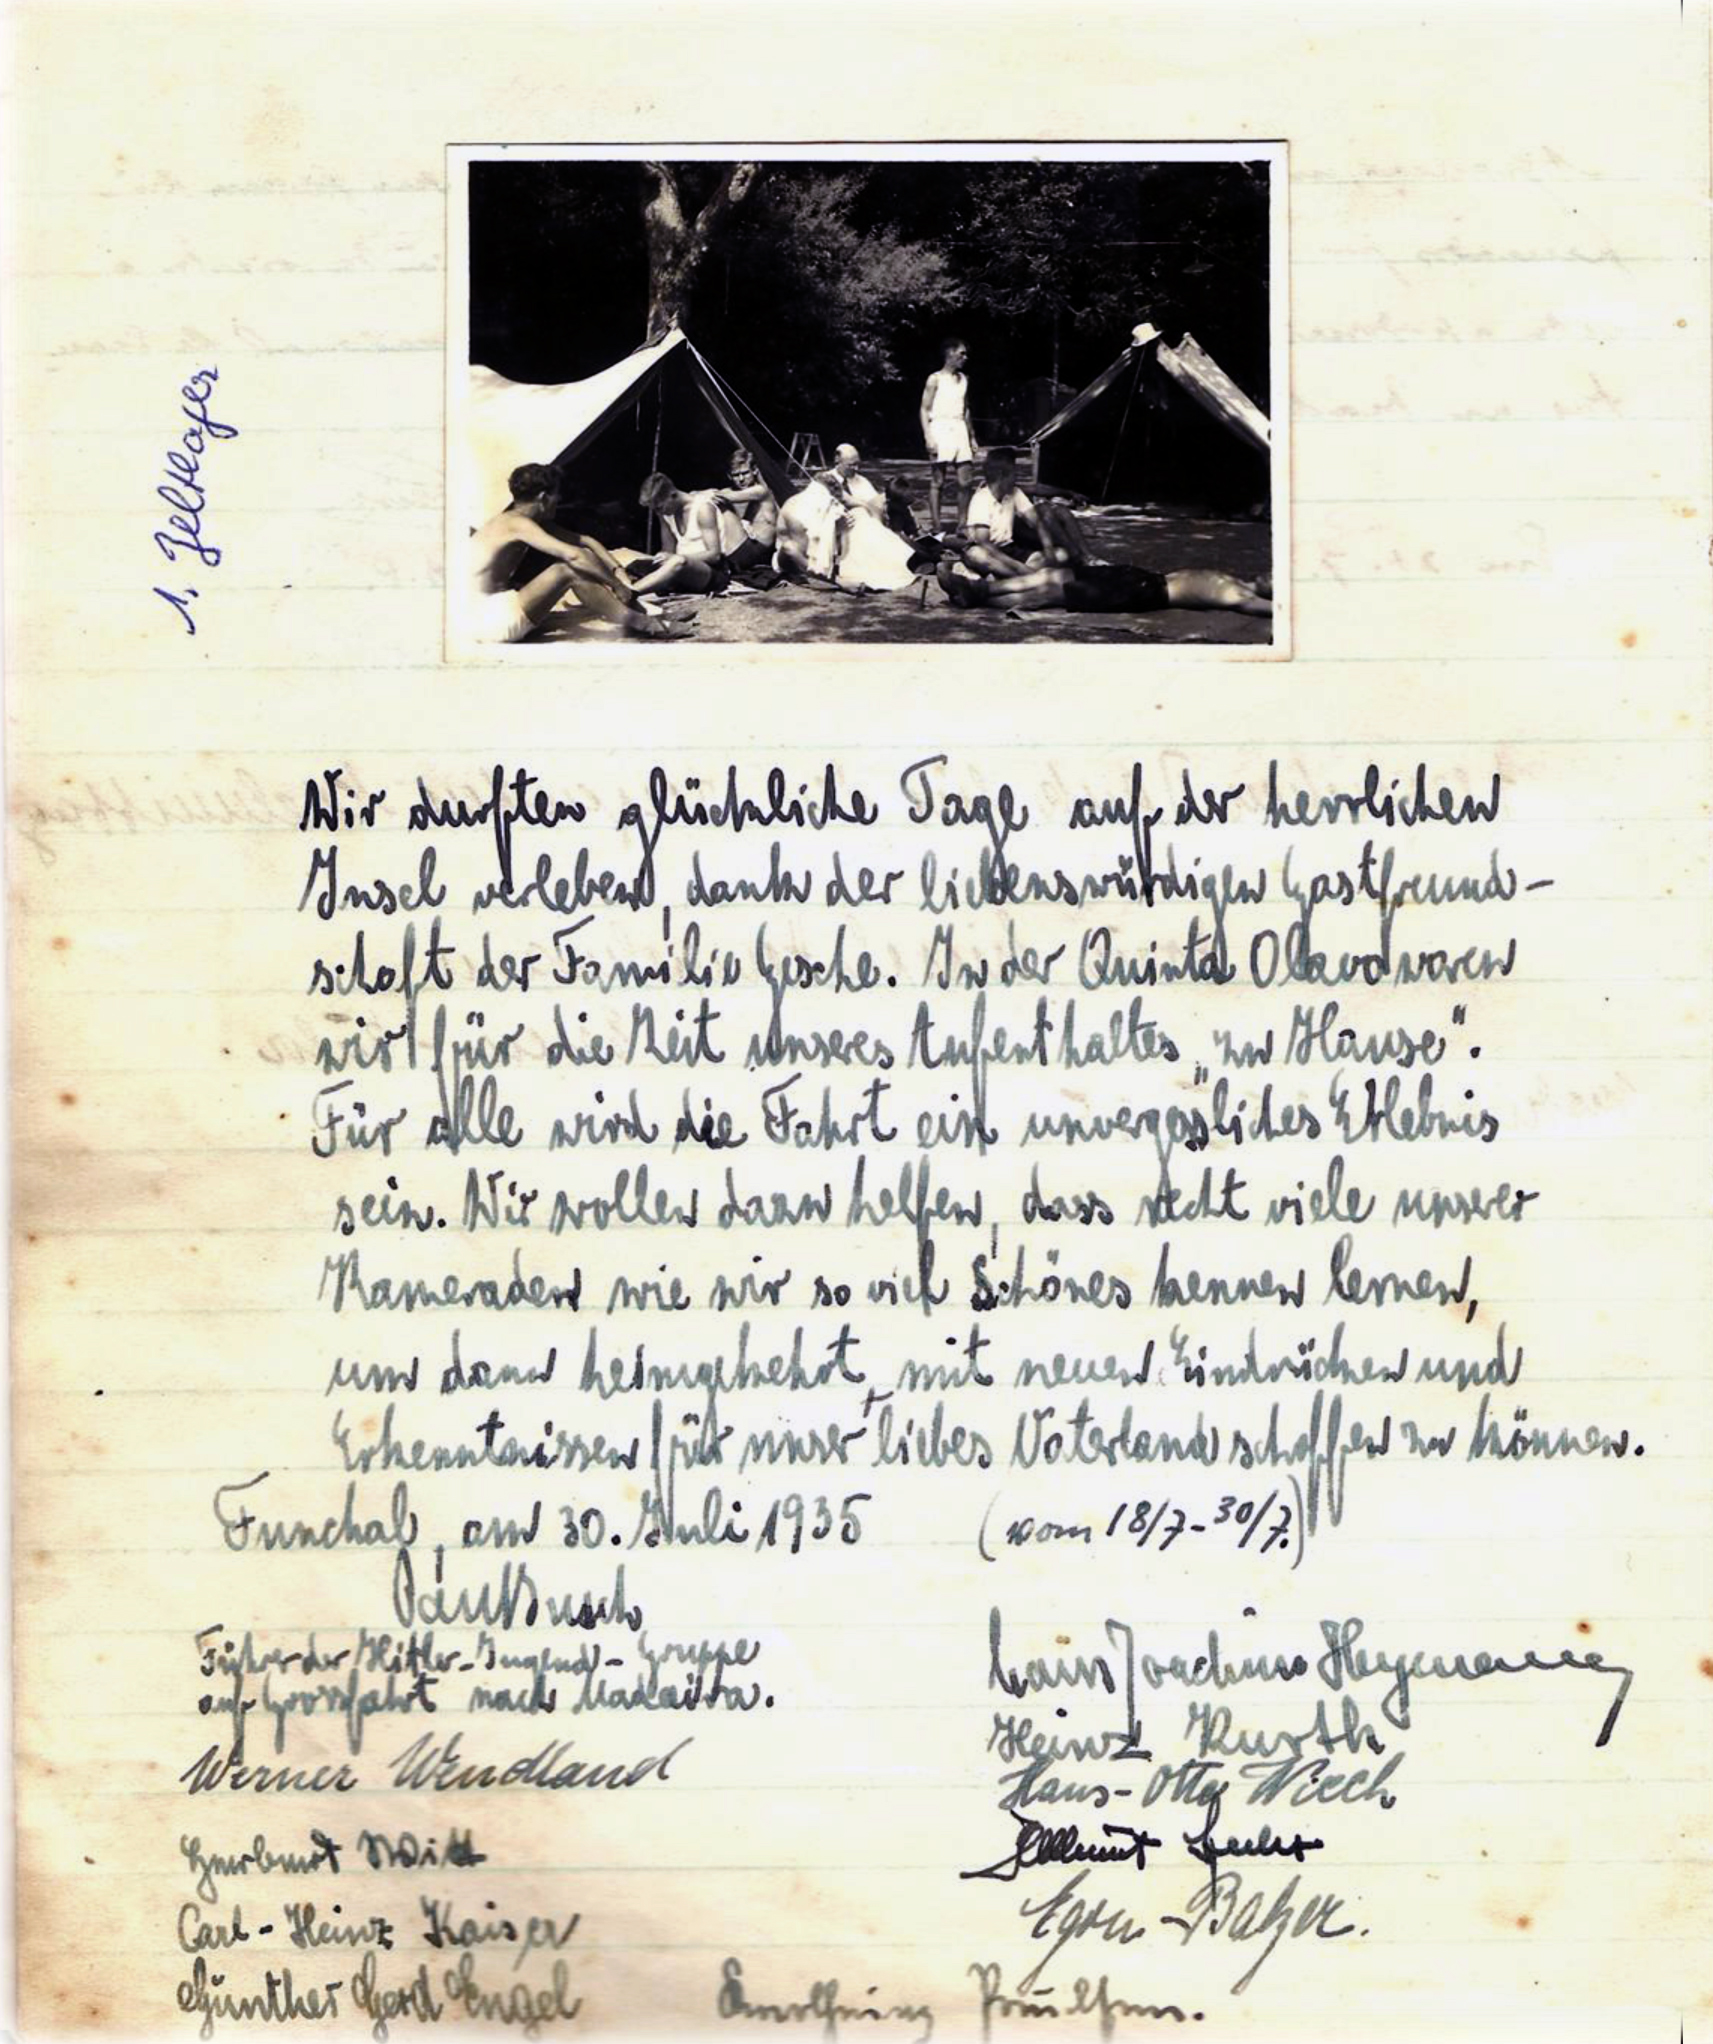 1. Zeltlager
Wir durften glückliche Tage auf der herrlichen
Insel verleben, dank der liebenswürdigen Gastfreund-
schaft der Familie Gesche. In der Quinta Olavo waren
wir für die Zeit unseres Aufenthaltes „zu Hause".
Für alle wird die Fahrt ein unvergessliches Erlebnis
sein. Wir wollen dazu helfen, dass recht viele unserer
Kameraden wie wir so viel Schönes kennen lernen,
um dann heimgekehrt, mit neuen Eindrücken und
Erkenntnissen für unser liebes Vaterland schaffen zu können.
Funchal, am 30. Juli 1935 (vom 18/7-30/7.)
Paul Busch
Führer der Hitler-Jugend-Gruppe
auf Grossfahrt nach Madeira.
Werner Wendland
Herbert Witt
Carl-Heinz Kaiser
Günther Gerd Engel
Hans Joachim Heymann
Heinz Kurth
Hans-Otto Wiech
Hellmut
Egon Balzer.
Karlheinz Paulsen.